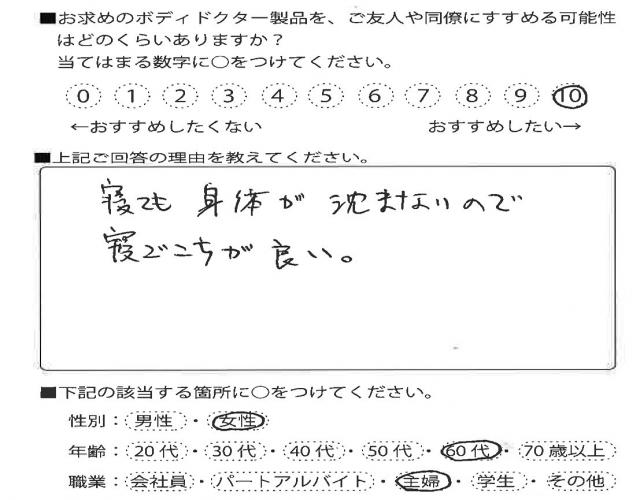 ■お求めのボディドクター製品を、ご友人や同僚にすすめる可能性
はどのくらいありますか？
当てはまる数字に○をつけてください。
0 1 2 3 4 5 6 7 8 9 10
←おすすめしたくない おすすめしたい→
■上記ご回答の理由を教えてください。
寝ても 身体が 沈まないので
寝ごこちが 良い。
■下記の該当する箇所に○をつけてください。
性別：男性・女性
年齢：20代・30代・40代・50代・60代・70歳以上
職業：会社員・パートアルバイト・主婦・学生・その他